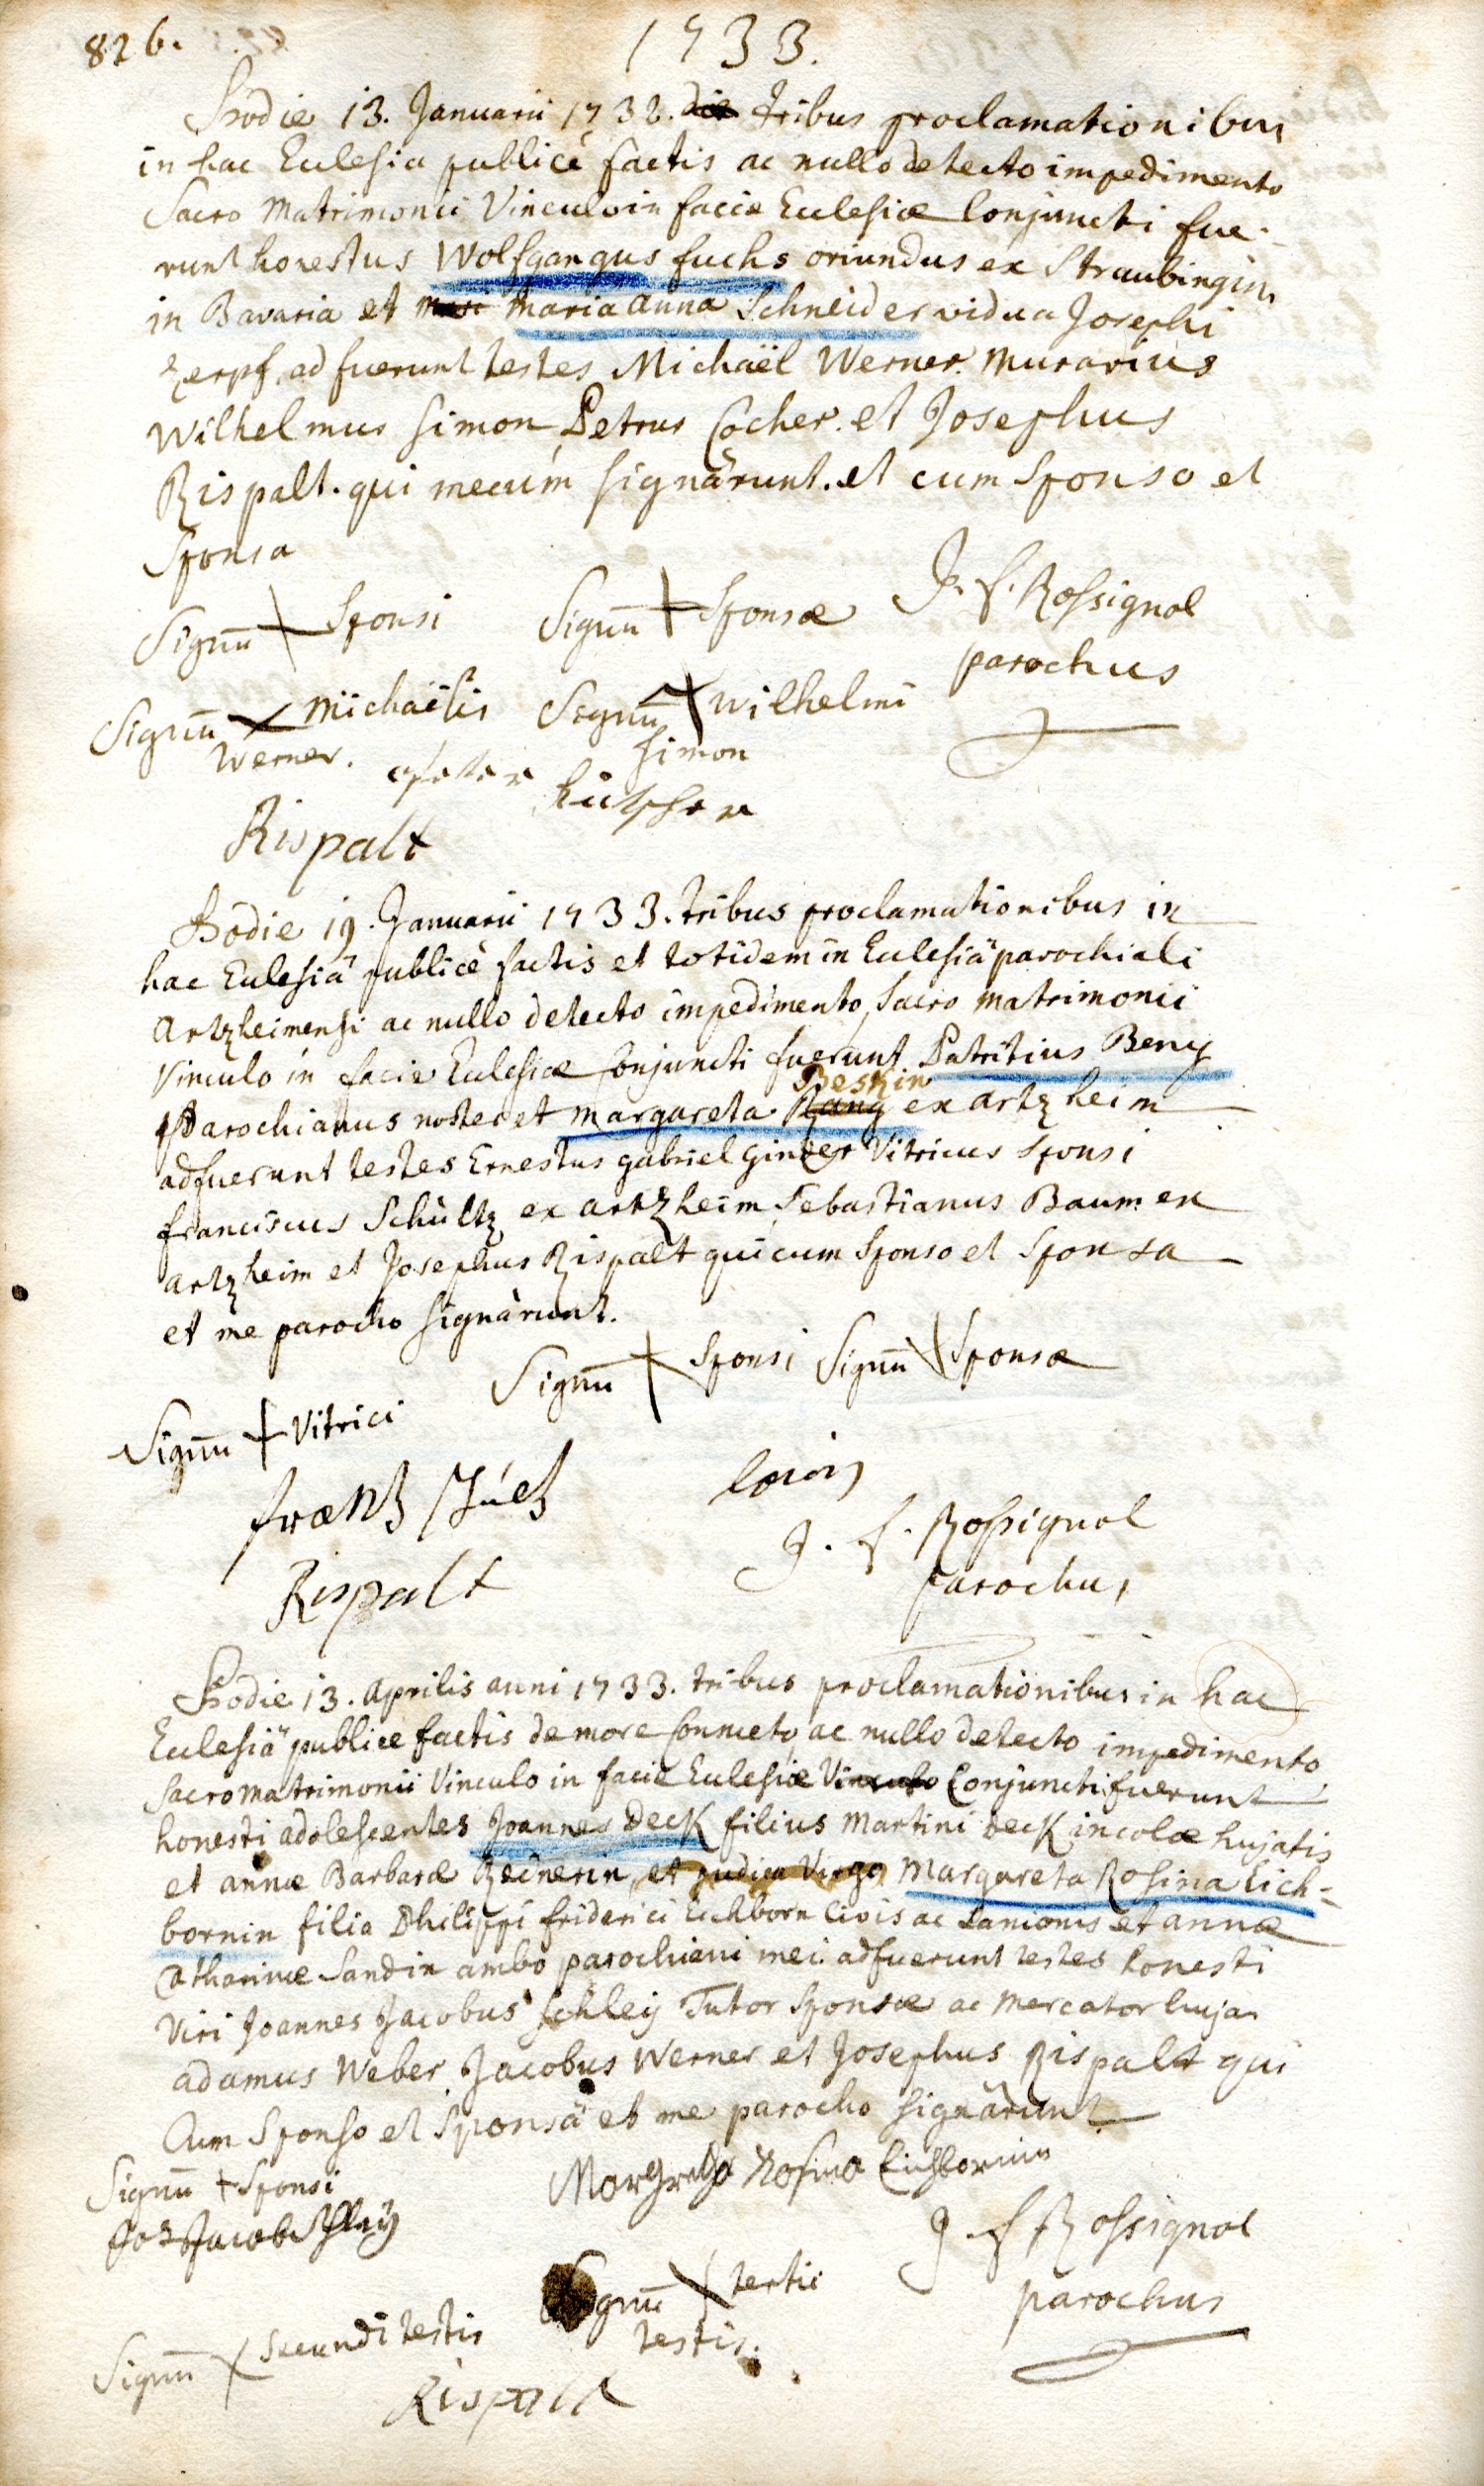 826.
1733.
Hodie 13. Januarii 1732. die tribus proclamationibus
in hac Eclesia publicè factis ac nullo detecto impedimento
Sacro Matrimonii Vinculo in facie Eclesiæ Conjuncti fue-
runt honestus Wolfgangus fuchs oriundus ex Straubingin
in Bavaria et mari maria anna Schneider vidua Josephi
zerpf, adfuerunt testes Michaël Werner. Murarius
Wilhelmus Simon Petrus Cocher. et Josephus
Rispalt. qui mecum signârunt. et cum Sponso et
Sponsa
Signū + Sponsi Signū + Sponsæ J. f. Rossignol
parochus
Signū + Michaëlis Signū + Wilhelmi
Werner. Simon
peter
Rispalt
Hodie 19. Januarii 1733. tribus proclamationibus in
hac Eclesiâ publicè factis et totidem in Eclesiâ parochiali
Artzheimensi ac nullo detecto impedimento, Sacro matrimonii
Vinculo in facie Eclesiæ Conjuncti fuerunt Patritius Beny
Beskin
parochianus noster et margareta Rang ex artzheim
adfuerunt testes Ernestus gabriel ginder Vitricus Sponsi
franciscus Schültz ex artzheim Sebastianus Baum ex
artzheim et Josephus Rispalt qui cum Sponso et Sponsa
et me parocho signàrunt.
Signū + Sponsi Signū + Sponsæ
Signū + Vitrici
frantz
J. f. Rossignol
Rispalt parochus
Hodie 13. Aprilis anni 1733. tribus proclamationibus in hac
Eclesiâ publice factis de more Consueto, ac nullo detecto impedimento
Sacro matrimonii Vinculo in facie Eclesiæ Vinculo Conjuncti fuerunt
honesti adolescentes Joannes Deck filius Martini Deck incolæ hujatis
et annæ Barbaræ Rednerin, et pudica Virgo Margareta Rosina Eich-
bornin filia Philippi friderici Eichborn Civis ac Lanionis et annæ
Catharinæ Sandin ambo parochiani mei. adfuerunt testes honesti
Viri Joannes Jacobus Schleÿ Tutor Sponsæ ac Mercator hujas
adamus Weber Jacobus Werner et Josephus Rispalt qui
Cum Sponso et Sponsâ et me parocho signârunt
Signū + Sponsi Margreda Rosina Eichbornin
Joh Jacob Schleÿ J. f Rossignol
Signū + tertii parochus
Signū + Secundi testis testis.
Rispalt